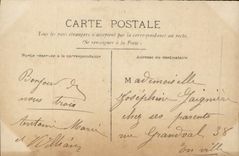 CARTE POSTALE
Tous les pays étrangers n'acceptent pas la correspondance au recto.
(Se renseigner à la Poste)
Partie réservée à la correspondance
Adresse du destinataire
Bonjour de
nous trois
Antoine Marie
et
Mademoiselle
Joséphine
chez ses parents
rue Grandval 38
en ville